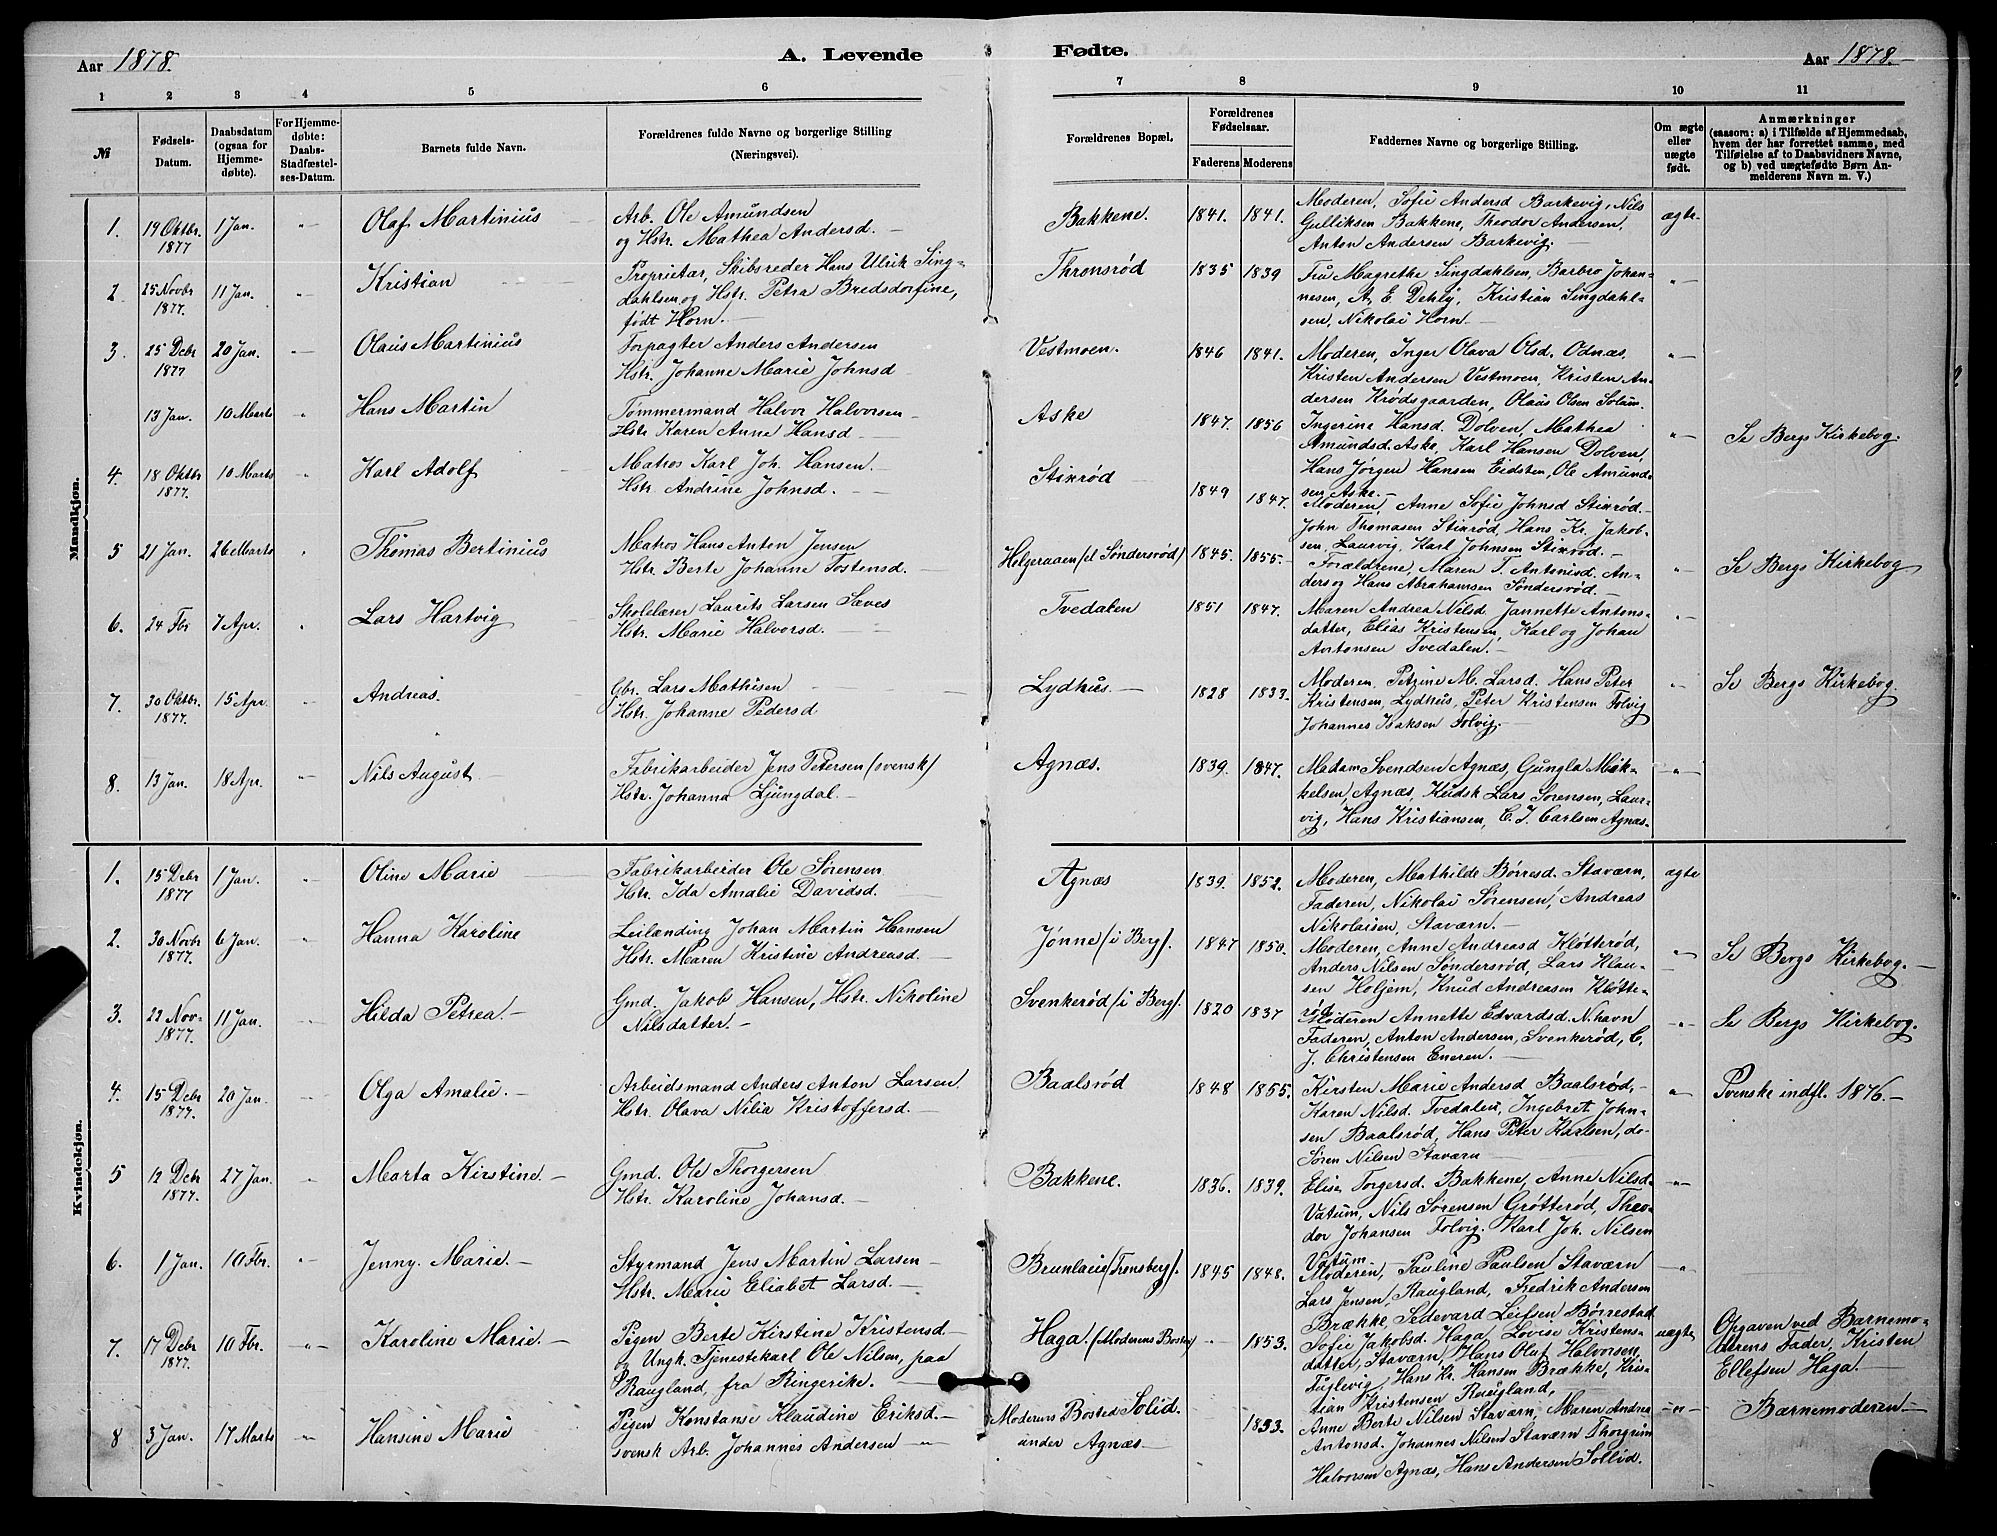 Aar 1878.
A. Levende
Fødte.
Aar 1878.
1 2 3 4 5 6 7 8 9 10 11
№
Fødsels-
Datum.
Daabsdatum
(ogsaa for
Hjemme-
døbte).
For Hjemme-
døbte:
Daabs-
Stadfæstel-
ses-Datum.
Barnets fulde Navn.
Forældrenes fulde Navne og borgerlige Stilling
(Næringsvei).
Forældrenes Bopæl.
Forældrenes
Fødselsaar.
Faderens Moderens
Faddernes Navne og borgerlige Stilling.
Om ægte
eller
uægte
født.
Anmærkninger
(saasom: a) i Tilfælde af Hjemmedaab,
hvem der har forrettet samme, med
Tilføielse af to Daabsvidners Navne,
og b) ved uægtefødte Børn An-
melderens Navn m. V.)
Mandkjøn.
1. 19 Oktbr. 1877 1 Jan. „ Olaf Martinius
Arb. Ole Amundsen
og Hstr. Mathea Andersd.
Bakkene. 1841. 1841.
Moderen, Sofie Andersd Barkevig, Nils
Gulliksen Bakkene, Theodor Andersen,
Anton Andersen Barkevig.
ægte
2 25 Novbr 1877. 11 Jan. „ Kristian
Proprietær, Skibsreder Hans Ulrik Sing=
dahlsen og Hstr. Petra Bredsdorfine,
født Horn.
Thronsrød 1835 1839
Fru Magrethe Singdahlsen, Barbro Johan-
nesen, A. E. Dehly, Kristian Singdahl-
sen, Nikolai Horn
„
3. 25 Debr 1877 20 Jan. Olaus Martinius
Forpagter Anders Andersen
Hstr. Johanne Marie Johnsd
Vestmoen. 1846 1841.
Moderen, Inger Olava Olsd. Odnæs,
Kristen Andersen Vestmoen, Kristen An-
dersen Krødsgaarden, Olaus Olsen Solum.
„
13 Jan. 10 Marts „ Hans Martin
Tømmermand Halvor Halvorsen
Hstr. Karen Anne Hansd
Aske 1847. 1856
Ingerine Hansd. Dolven, Mathea
Amundsd. Aske, Karl Hansen Dolven,
Hans Jørgen Hansen Eidsten, Ole Amund-
sen Aske.
„ Se Bergs Kirkebog.
4. 18 Oktbr 1877. 10 Marts „ Karl Adolf
Matros Karl Joh. Hansen.
Hstr. Andrine Johnsd.
Stixrød 1849 1847.
Moderen, Anne Sofie Johnsd Stixrød.
John Thomasen Stixrød, Hans Kr. Jakob-
sen, Laurvig, Karl Johnsen Stixrød.
5 21 Jan. 26 Marts „ Thomas Bertinius
Matros Hans Anton Jensen
Hstr. Berte Johanne Tostensd.
Holgeraaen (pl Søndersrød) 1845. 1855.
Forældrene, Maren T. Antonisd. An-
ders og Hans Abrahamsen Søndersrød.
„ Se Bergs Kirkebog
6. 24 Fbr 7 Apr. „ Lars Hartvig
Skolelærer Laurits Larsen Sæves
Hstr. Marie Halvorsd.
Tvedalen 1851 1847.
Maren Andrea Nilsd. Jannette Antons-
datter, Elias Kristensen, Karl og Johan
Antonsen Tvedalen.
„
7. 30 Oktbr. 1877. 15 Apr. „ Andreas.
Gbr. Lars Mathisen
Hstr. Johanne Pedersd.
Lydhus. 1828 1833.
Moderen, Petrine M. Larsd. Hans Peter
Kristensen, Lydhus, Peter Kristensen Folvig
Johannes Isaksen Folvig.
„ Se Bergs Kirkebog.
8. 13 Jan. 18 Apr. „ Nils August
Fabrikarbeider Jens Petersen (svensk)
Hstr. Johanna Ljungdal.
Agnæs. 1839. 1847.
Madam Svendsen Agnæs, Gungla Mik-
kelsen, Agnæs, Kudsk Lars Sørensen, Laur-
vig, Hans Kristiansen, C. J. Carlsen Agnæs.
„
Kvindekjøn.
1. 15 Debr 1877 1 Jan. „ Oline Marie
Fabrikarbeider Ole Sørensen
Hstr. Ida Amalie Davidsd.
Agnæs 1839. 1852.
Moderen, Mathilde Børresd. Staværn,
Faderen, Nikolai Sørensen, Andreas
Nikolaisen, Staværn.
ægte
2. 30 Novbr 1877. 6 Jan. „ Hanna Karoline
Leilænding Johan Martin Hansen
Hstr. Maren Kristine Andreasd.
Jønne (i Berg). 1847 1850.
Moderen, Anne Andreasd Kløtterød,
Anders Nilsen Søndersrød, Lars Klau-
sen Holjem, Knud Andreasen Kløtte-
rød
„ Se Bergs Kirkebog.
3. 22 Nov. 1877. 11 Jan. „ Hilda Petrea.
Gmd. Jakob Hansen, Hstr. Nikoline
Nilsdatter.
Svenkerød (i Berg). 1820 1837
Moderen Annette Edvardsd. N.havn
Faderen, Anton Andersen, Svenkerød, C.
J. Christensen Eneren.
„ Se Bergs Kirkebog.
4. 15 Debr 1877. 20 Jan. „ Olga Amalie.
Arbeidsmand Anders Anton Larsen
Hstr. Olava Nilia Kristoffersd.
Baalsrød 1848 1855.
Kirsten Marie Andersd Baalsrød,
Karen Nilsd. Tvedalen, Ingebret John-
sen Baalsrød, Hans Peter Karlsen, do.
Søren Nilsen Staværn
„ Svenske indfl. 1876.
5 12 Debr 1877. 27 Jan. „ Marta Kirstine.
Gmd. Ole Thorgersen
Hstr. Karoline Johansd.
Bakkene. 1836. 1839.
Elise Torgersd. Bakkene, Anne Nilsd.
Vatum, Nils Sørensen Grøtterød, Theo-
dor Johansen Folvig. Karl Joh. Nilsen
Vatum.
„
6. 1 Jan. 10 Fbr. „ Jenny Marie.
Styrmand Jens Martin Larsen
Hstr. Marie Eliabet Larsd.
Brunlaug (Trensberg). 1845 1848.
Moderen, Pauline Paulsen Staværn
Lars Jensen, Raugland, Fredrik Andersen
Brække, Sedevard Leifsen Børrestad
„
7. 17 Debr 1877. 10 Fbr. „ Karoline Marie.
Pigen Berte Kirstine Kristensd.
og Ungk. Tjenestekarl Ole Nilsen, paa
Raugland, fra Ringerike.
Haga. (Moderens Bosted) 1853.
Sofie Jakobsd. Haga, Lovise Kristens-
datter, Staværn, Hans Oluf Halvorsen,
Fuglevig, Hans Kr. Hansen Brække, Kris-
tian Kristensen Raugland,
uægte
Opgaven ved Barnemo-
derens Fader, Kristen
Ellefsen Haga.
8 3 Jan. 17 Marts „ Hansine Marie
Pigen Konstanse Klaudine Eriksd.
svensk Arb. Johannes Andersen
Moderens Bosted Solid.
under Agnæs
1853.
Anne Berte Nilsen Staværn, Maren Andrea
Antonsd. Johannes Nilsen Staværn Thorgrim
Halvorsen Agnæs, Hans Andersen Sollid.
„ Barnemoderen